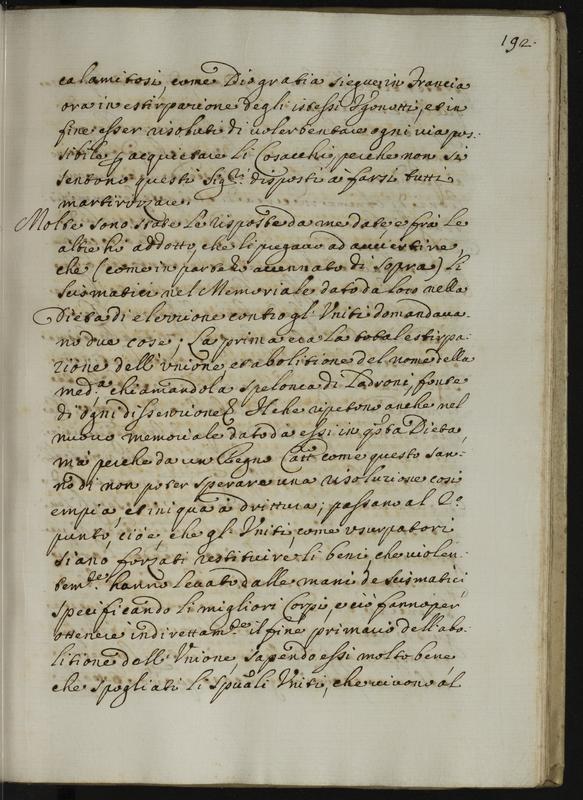 192.
calamitosi, come Dio gratia siegue in Francia
ora in estirpazione degli istessi Vgonotti, et in
fine esser risoluti di voler tentare ogni via pos:
sibile p acquietare li Cosacchi, perche non si
sentono questi Sig.ri disposti a farsi tutti
martirizzare.
Molte sono state le risposte da me date e frà le
altre hò addotto, che li pregavo ad avvertire,
che (come in parte hò accennato di sopra) li
scismatici nel Memoriale dato da loro nella
Dieta di elezzione contro gl'Uniti domandava:
no due cose; La prima era la total estirpa:
zione dell'unione, et abolitione del nome della
med.a chiamandola spelonca di Ladroni, fonte
di ogni dissenzione Il che ripetono anche nel
nuovo memoriale dato da essi in q̃sta Dieta,
mà perche da un Regno Catt.co come questo san:
no di non poter sperare una risoluzione così
empia, et iniqua à drittura; passano al 2.o
punto, cioè, che gl'Uniti come usurpatori
siano forzati restituire li beni, che violen:
tem.te hanno levato dalle mani de Scismatici
specificando li migliori Corpi, e ciò fanno per
ottenere indirettam.te il fine primario dell'abo:
litione dell'Unione sapendo essi molto bene
che spogliati li Sp̃uali Uniti, che vivono al